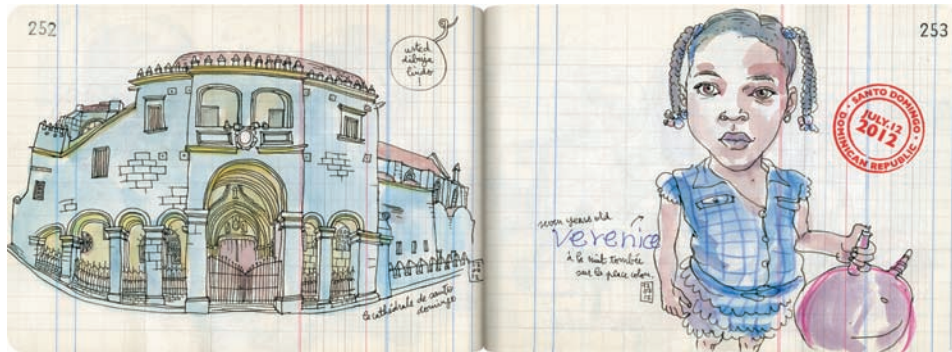 252
usted
dibuja
lindo
!
la cathédrale de santo
domingo
253
SANTO DOMINGO
JULY.12
2012
DOMINICAN REPUBLIC
seven years old
Verenice
à la nuit tombée
sur la place colon.